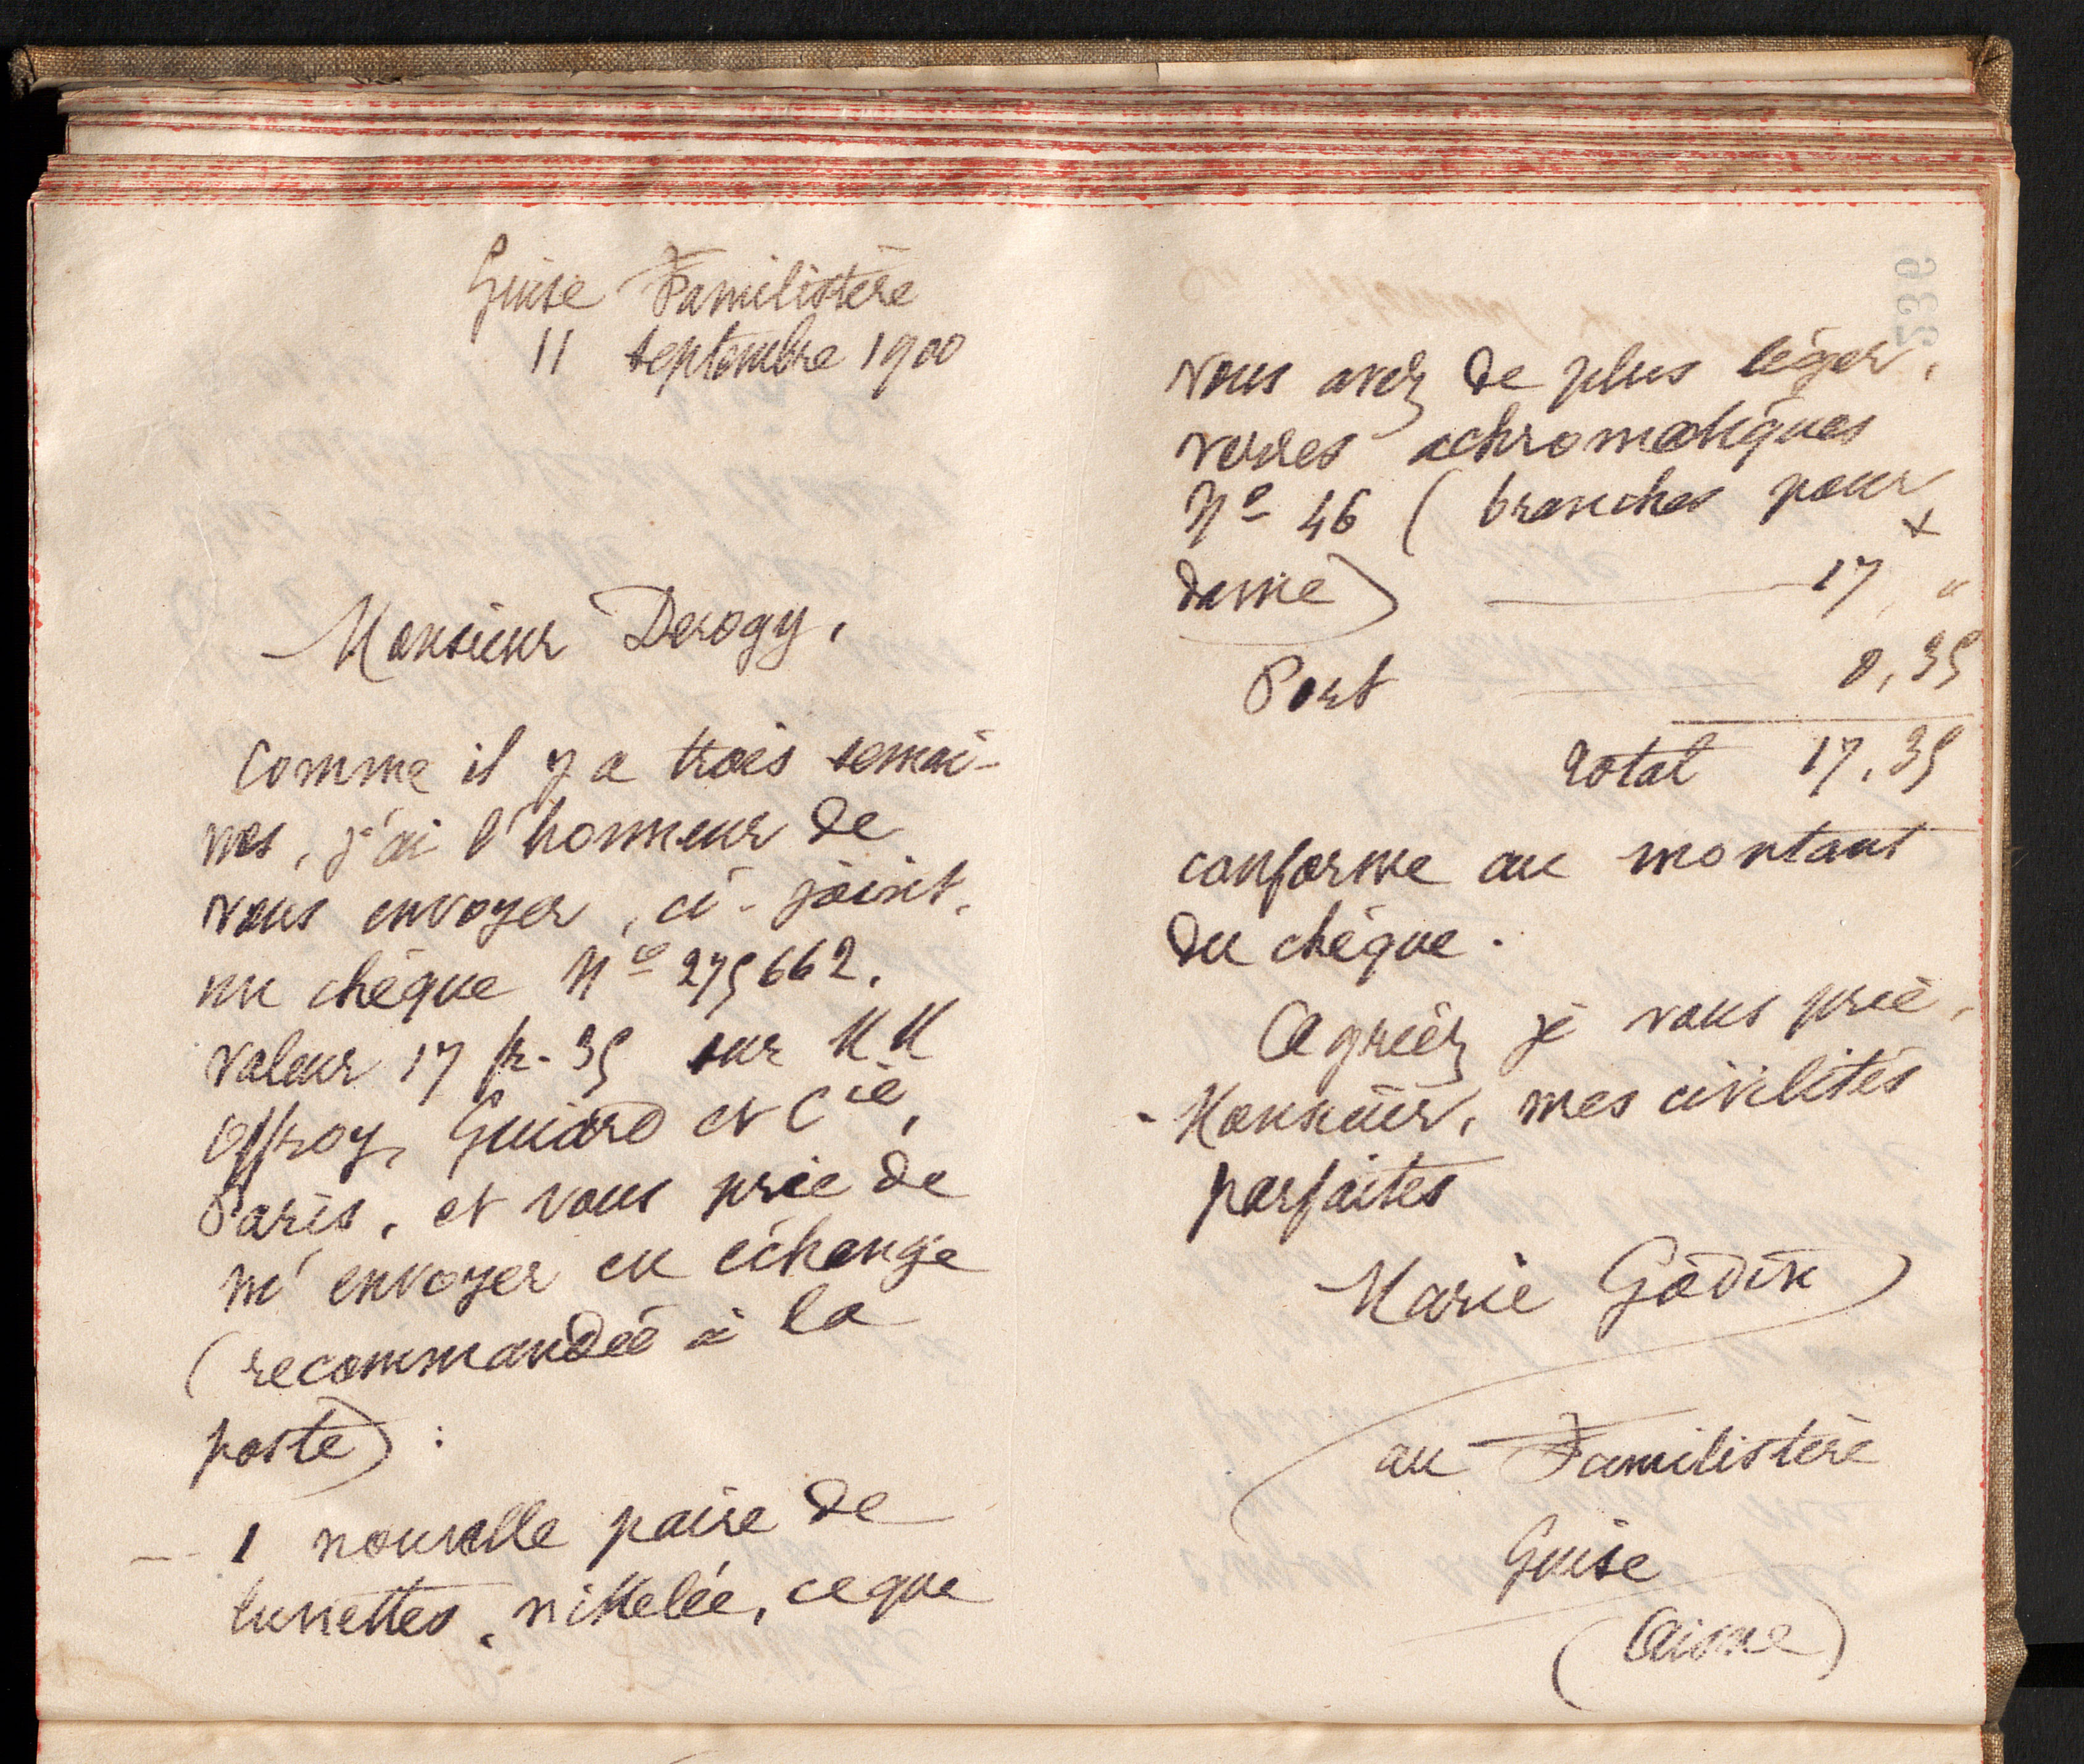 Guise Familistère
11 septembre 1900
Monsieur Derogy,
Comme il y a trois semai-
nes, j'ai l'honneur de
vous envoyer, ci-joint,
un chèque Nº 275662.
valeur 17 fr. 35 sur MM
Offroy, Guiard et Cie,
Paris, et vous prie de
m'envoyer en échange
(recommandée à la
poste) :
1 nouvelle paire de
lunettes, nikelée, ce que
236
vous avez de plus léger,
verres achromatiques
Nº 46 (branches pour
dame) 17, "
Port 0,35
Total 17,35
conforme au montant
du chèque.
Agréez je vous prie,
Monsieur, mes civilités
parfaites
Marie Godin
au Familistère
Guise
(Aisne)